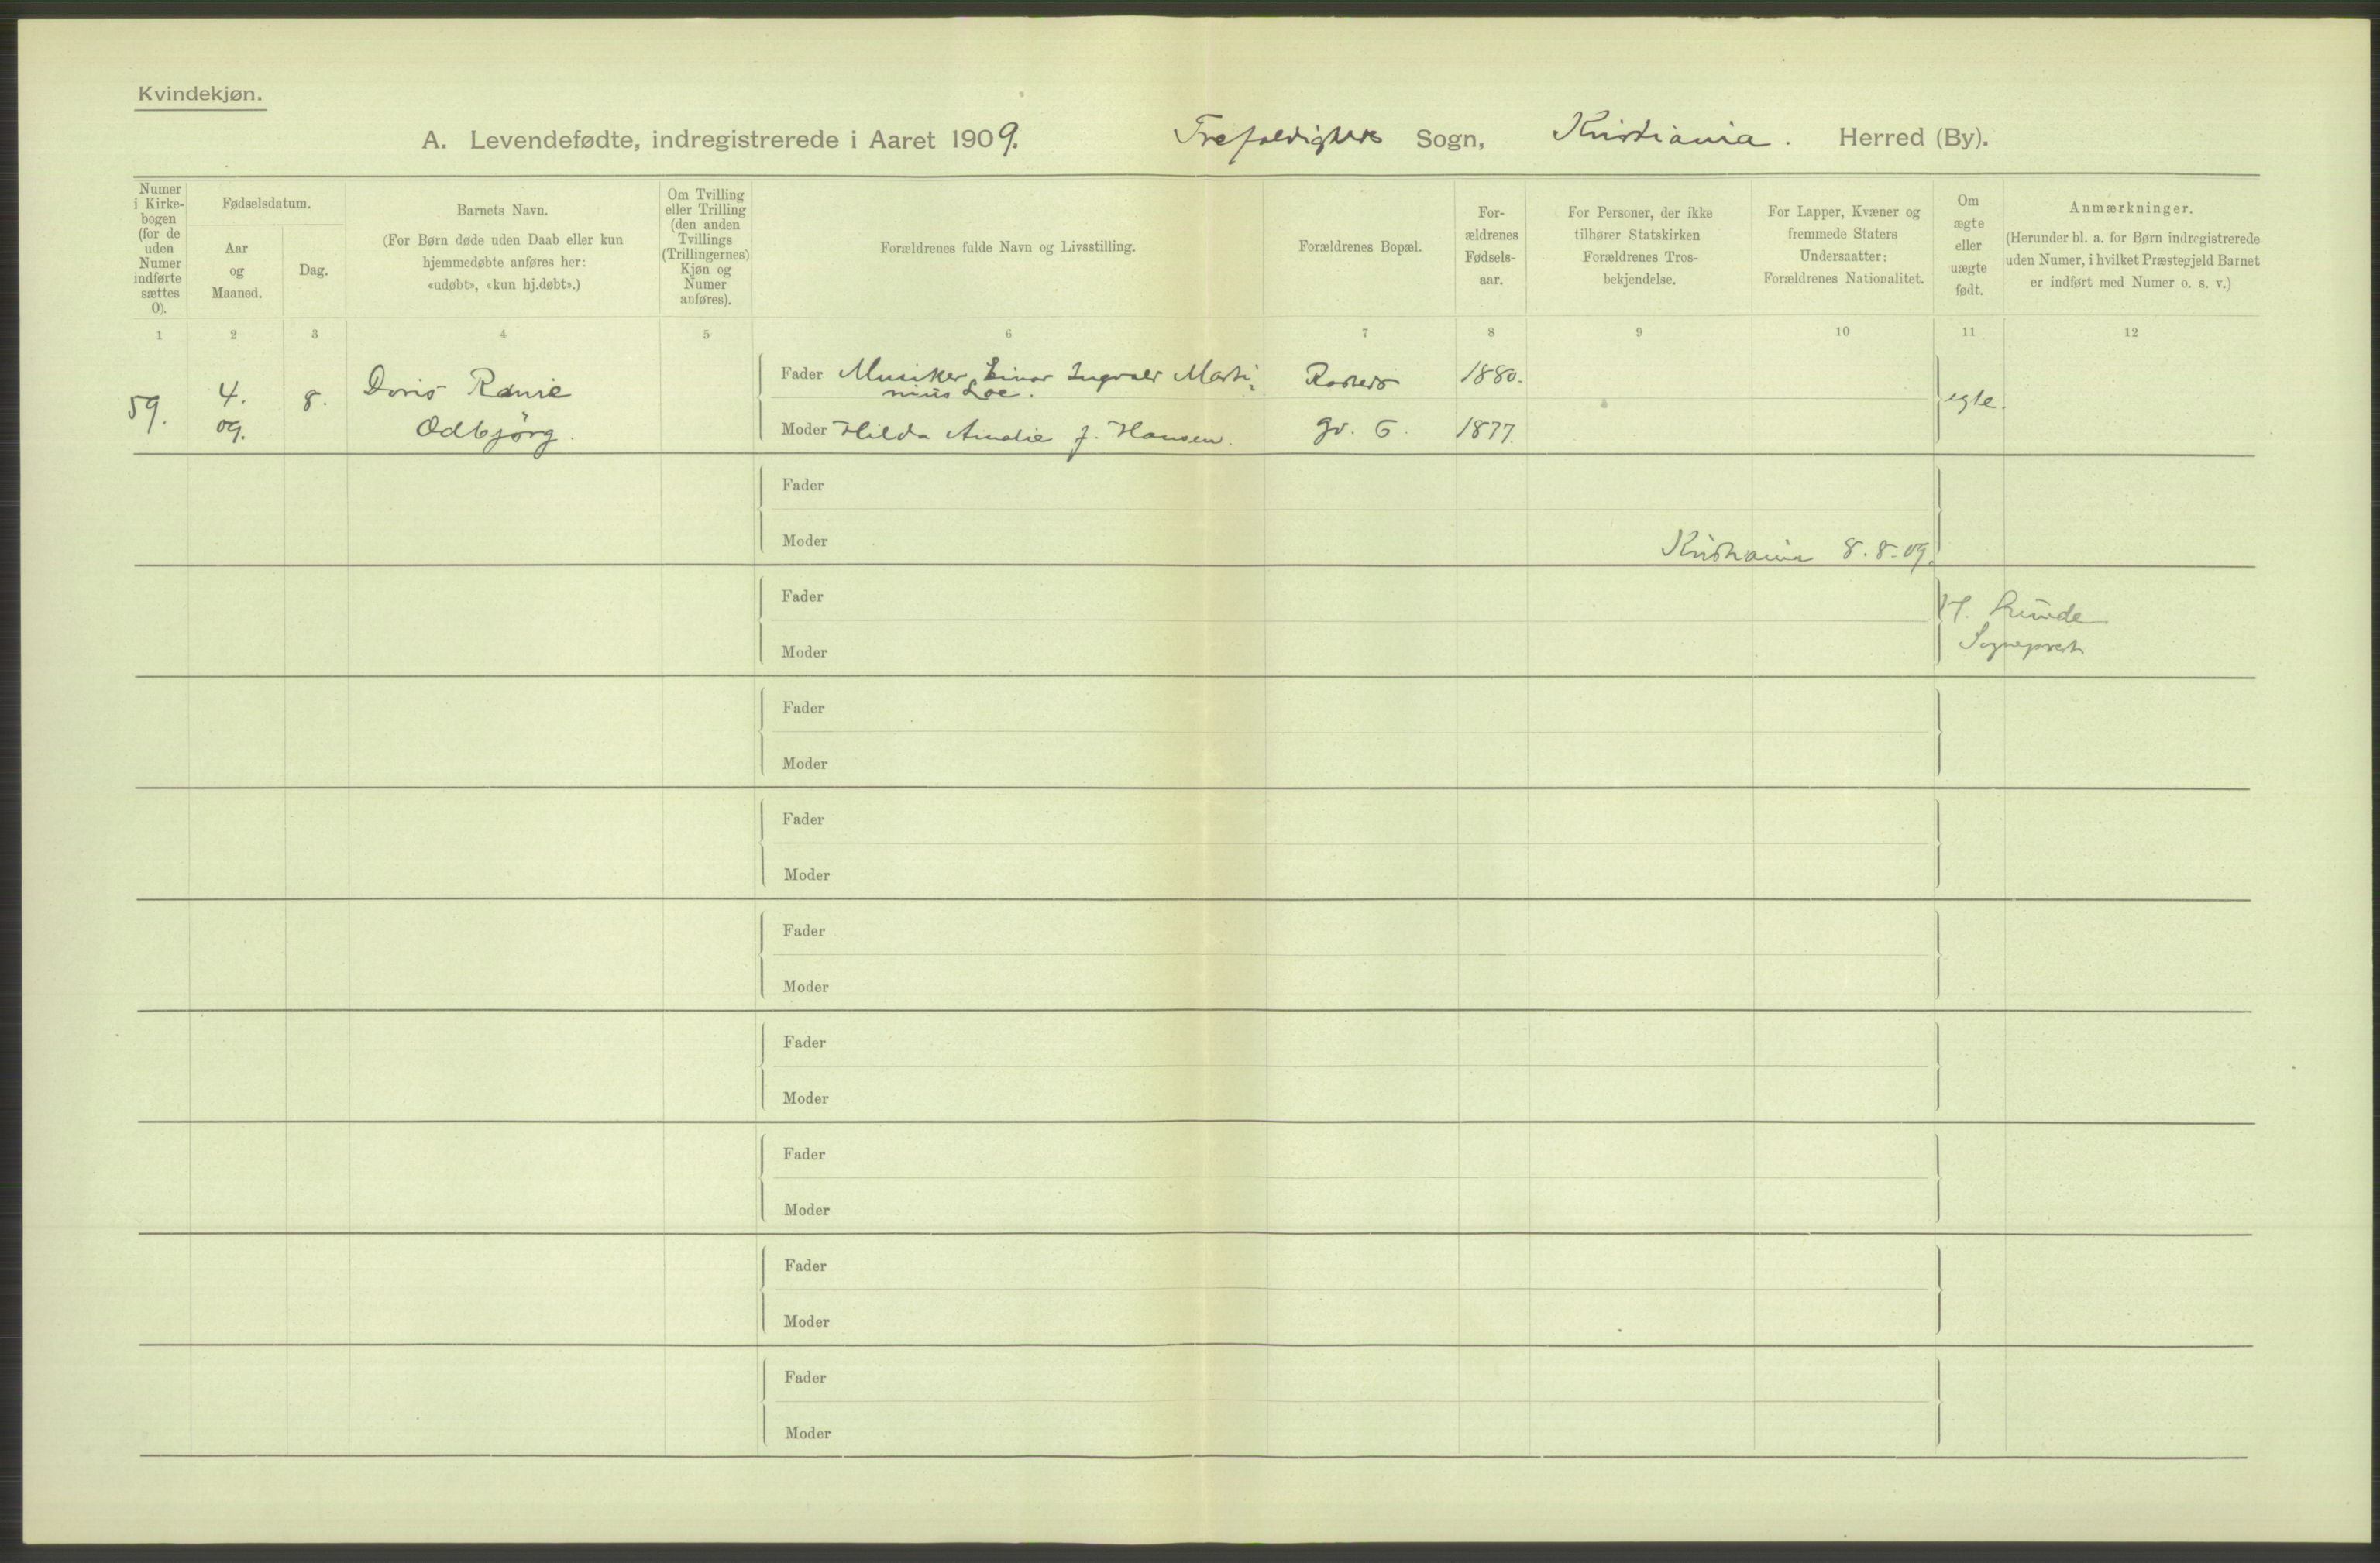 Kvindekjøn.
A. Levendefødte, indregistrerede i Aaret 1909. Trefoldigheds Sogn, Kristiania. Herred (By).
Numer
i Kirke-
bogen
(for de
uden
Numer
indførte
sættes
0).
Fødselsdatum.
Aar
og
Maaned.
Dag.
Barnets Navn.
(For Børn døde uden Daab eller kun
hjemmedøbte anføres her:
«udøbt», «kun hj.døbt».)
Om Tvilling
eller Trilling
(den anden
Tvillings
(Trillingernes)
Kjøn og
Numer
anføres).
Forældrenes fulde Navn og Livsstilling.
Forældrenes Bopæl.
For-
ældrenes
Fødsels-
aar.
For Personer, der ikke
tilhører Statskirken
Forældrenes Tros-
bekjendelse.
For Lapper, Kvæner og
fremmede Staters
Undersaatter:
Forældrenes Nationalitet.
Om
ægte
eller
uægte
født.
Anmærkninger.
(Herunder bl. a. for Børn indregistrerede
uden Numer, i hvilket Præstegjeld Barnet
er indført med Numer o. s. v.)
1 2 3 4 5 6 7 8 9 10 11 12
59.
4.
09.
8.
Doris
Odbjörg.
Fader Musiker Einar Ingvald Marti-
nius Loe.
Moder Hilda Amalie f. Hansen.
gd. 6.
1880.
1877.
egte.
Fader
Moder
Kristiania 8.8.09.
Fader
Moder
Sogneprest
Fader
Moder
Fader
Moder
Fader
Moder
Fader
Moder
Fader
Moder
Fader
Moder
Fader
Moder